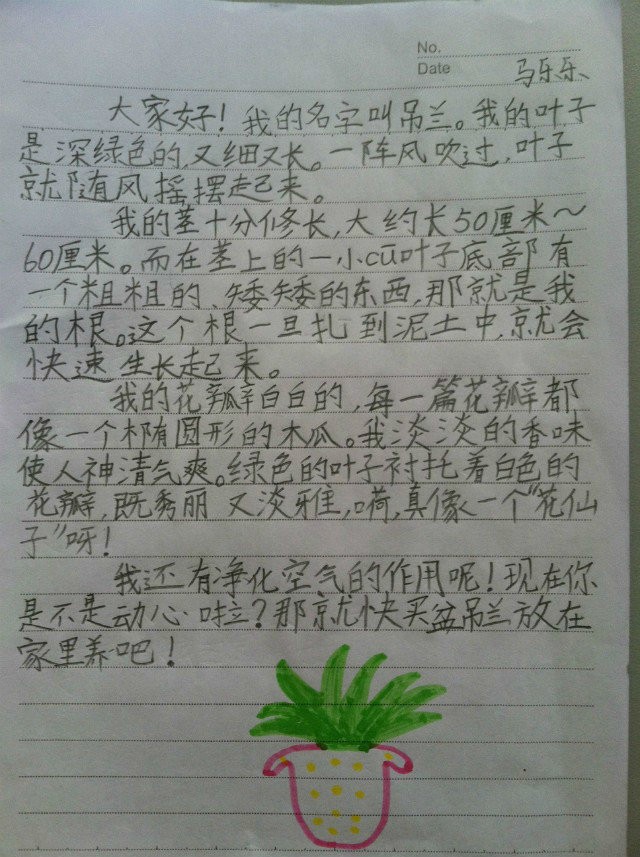 No.
Date
马乐乐
大家好！我的名字叫吊兰。我的叶子
是深绿色的,又细又长。一阵风吹过,叶子
就随风摇摆起来。
我的茎十分修长,大约长50厘米～
60厘米。而在茎上的一小cū叶子底部有
一个粗粗的、矮矮的东西,那就是我
的根。这个根一旦扎到泥土中,就会
快速生长起来。
我的花瓣白白的,每一篇花瓣都
像一个椭圆形的木瓜。我淡淡的香味
使人神清气爽。绿色的叶子衬托着白色的
花瓣,既秀丽又淡雅,嗬,真像一个“花仙
子”呀！
我还有净化空气的作用呢！现在你
是不是动心啦？那就快买盆吊兰放在
家里养吧！